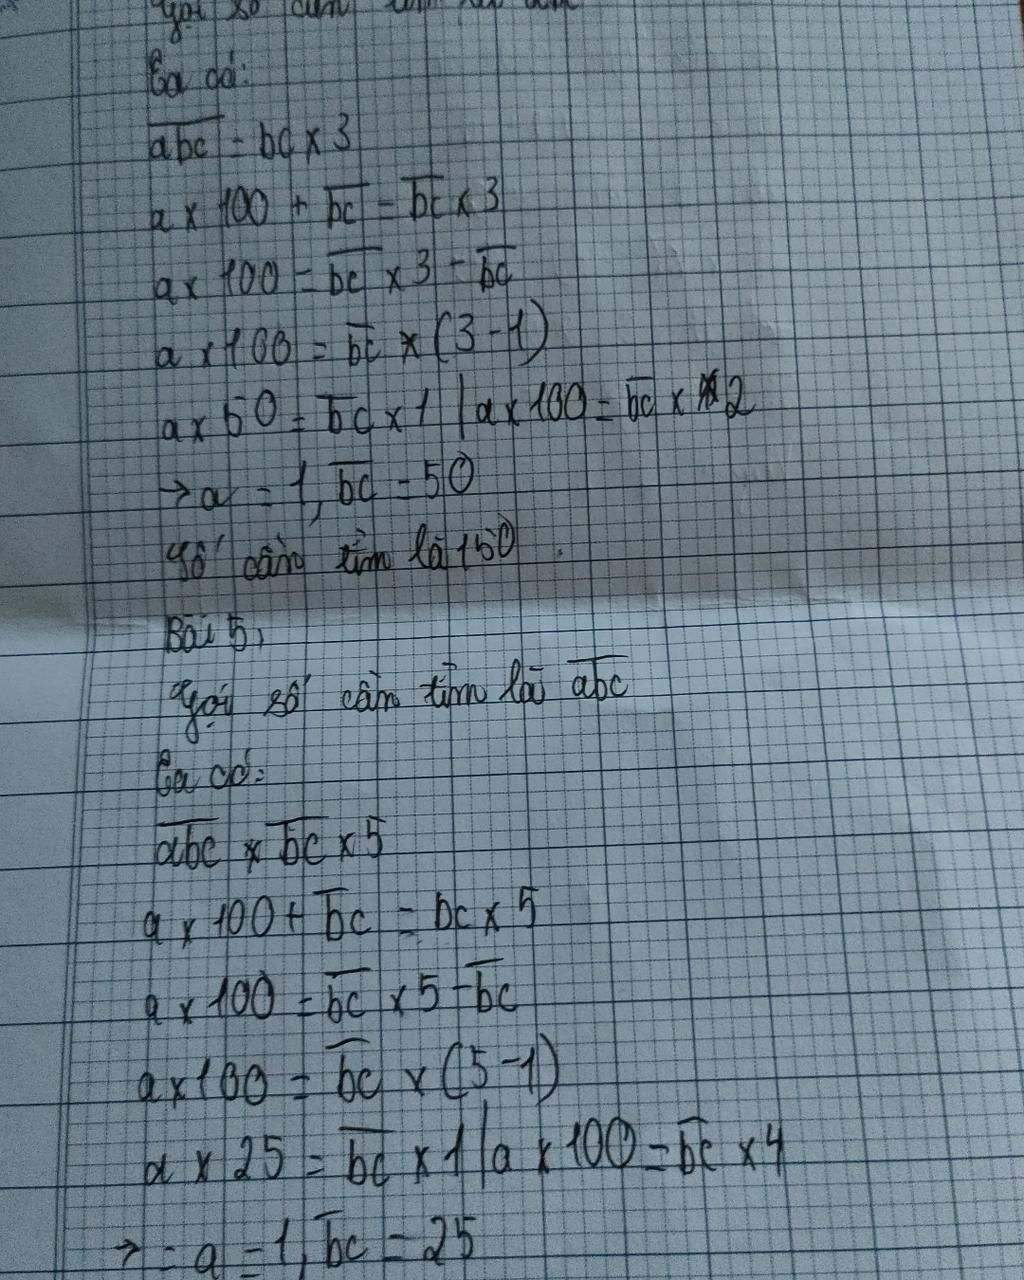 Gọi số cần tìm
Ta có:
a̅b̅c̅ = bc x 3
a x 100 + b̅c̅ = b̅c̅ x 3
a x 100 = b̅c̅ x 3 - b̅c̅
a x 100 = b̅c̅ x (3-1)
a x 50 = b̅c̅ x 1 | a x 100 = b̅c̅ x 2
→ a = 1, b̅c̅ = 50
Số cần tìm là 150
Bài 5,
Gọi số cần tìm là a̅b̅c̅
Ta có:
a̅b̅c̅ x b̅c̅ x 5
a x 100 + b̅c̅ = bc x 5
a x 100 = b̅c̅ x 5 - b̅c̅
a x 100 = b̅c̅ x (5-1)
a x 25 = b̅c̅ x 1 | a x 100 = b̅c̅ x 4
→ = a = 1, b̅c̅ = 25